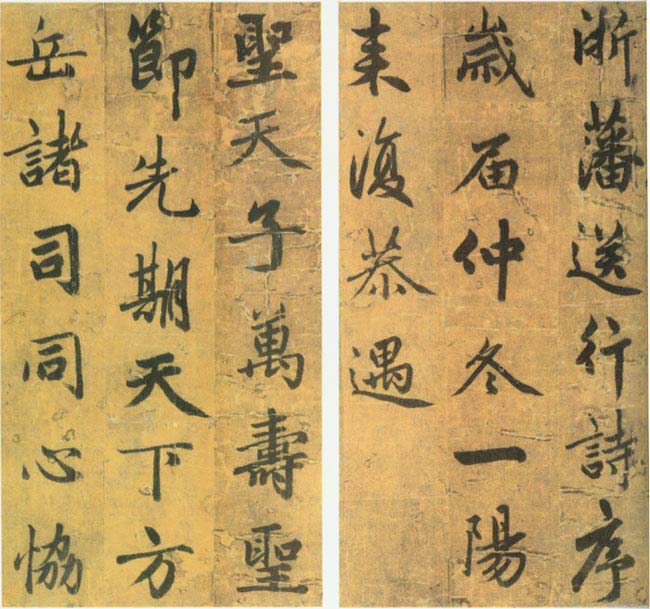 浙藩送行詩序
歳届仲冬一陽
来復恭遇
聖天子萬壽聖
節先期天下方
岳諸司同心恊